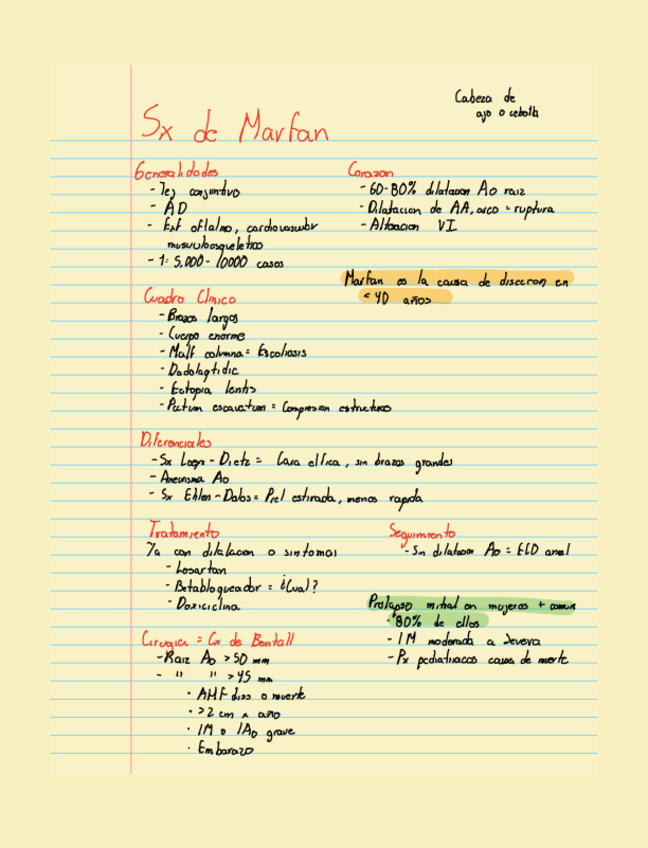 Cabeza de
ajo o cebolla
Sx de Marfan
Generalidades
- Tej conjuntivo
- AD
- Enf oftalmo, cardiovascular
musculoesqueletico
- 1: 5,000 - 10000 casos
Corazon
- 60-80% dilatacion Ao raiz
- Dilatacion de AA, arco = ruptura
- Alteracion VI
Marfan es la causa de diseccion en
< 40 años
Cuadro Clinico
- Brazos largos
- Cuerpo enorme
- Malf columna = Escoliosis
- Ectopia lentis
- Pectum escavatum = Compresion estructuras
Diferenciales
- Sx Loeys - Dietz = Cara elfica, sin brazos grandes
- Aneurisma Ao
- Sx Ehlers - Dalos = Piel estirada, menos rapida
Tratamiento
Ya con dilatacion o sintomas
- Losartan
- Betabloqueador = ¿Cual?
- Doxiciclina
Seguimiento
- Sin dilatacion Ao = ECO anual
Prolapso mitral en mujeres + comun
- 80% de ellos
- IM moderada a severa
- Px pediatriacos causa de muerte
Cirugia = Cx de Bentall
- Raiz Ao > 50 mm
- " " > 45 mm
· AHF diss o muerte
· > 2 cm x año
· IM o IAo grave
· Embarazo